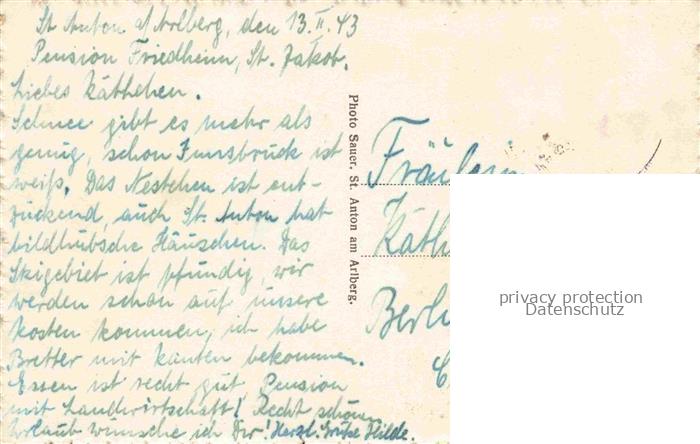 St Anton a/Arlberg, den 13.II.43
Pension Friedheim, St. Jakob.
Liebes Käthchen.
Schnee gibt es mehr als
genug, schon Innsbruck ist
weiß. Das Nestchen ist ent-
zückend, auch St. Anton hat
bildhübsche Häuschen. Das
Skigebiet ist pfundig, wir
werden schon auf unsere
Kosten kommen, ich habe
Bretter mit Kanten bekommen.
Essen ist recht gut, Pension
mit Landwirtschaft! Recht schönen
Urlaub wünsche ich Dir! Herzl. Grüße Hilde.
Photo Sauer, St. Anton am Arlberg.
Fräulein
Käth
Berl
privacy protection
Datenschutz